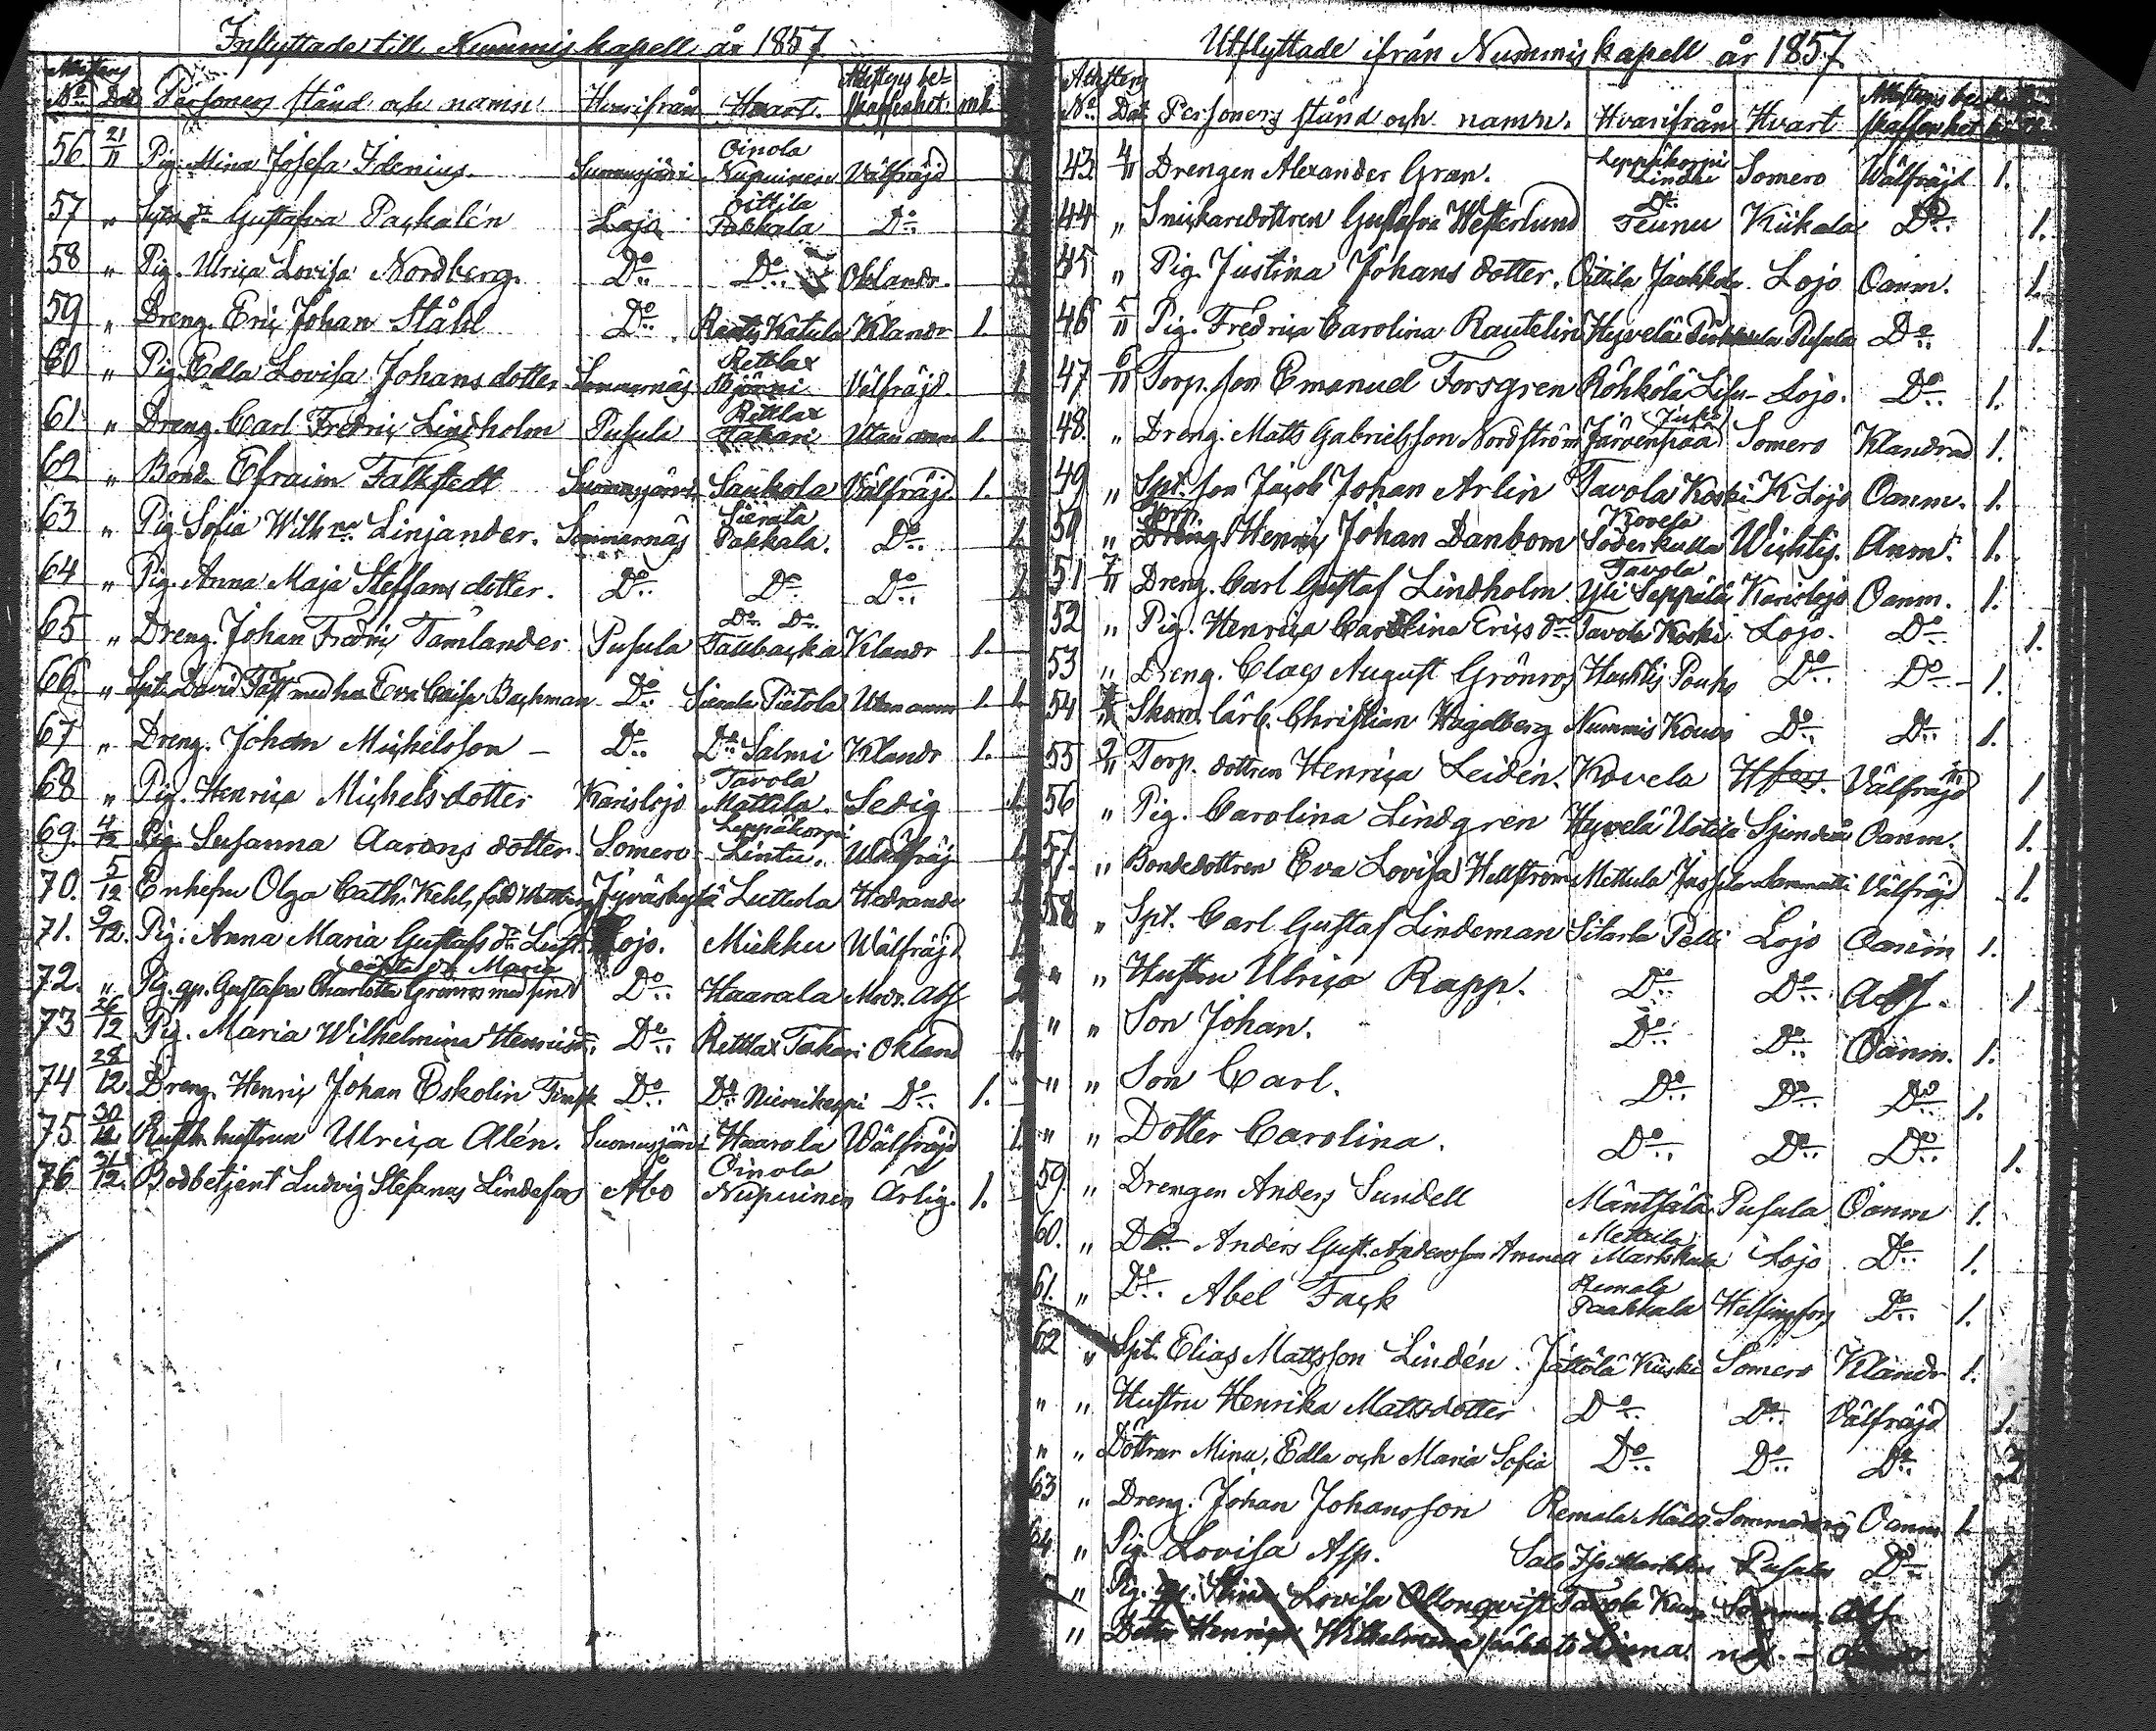 Inflyttade till Nummis kapell år 1857.
Attestens N:o Dat. Personers stånd och namn. Hvarifrån Hvart. Attestens beskaffenhet. mk
Oinola
56 21/11 Pig. Mina Josefa Idenius. Suomusjärvi Nupuinen Välfräjd 1
Oittila
57 " Gustafva Paskalén Lojo Pakkala D:o 1
58 " Pig. Ulrica Lovisa Nordberg. D:o D:o Oklandr. 1
59 " Dreng. Eric Johan Ståhl D:o Katula Klandr 1.
Retlax
60 " Pig. Edla Lovisa Johans dotter Sommarnäs Björni Välfräjd. 1
Retlax
61 " Dreng. Carl Fredric Lindholm Pusula Takari Utan anm 1.
62 " Bond. Efraim Falkstedt Suomusjärvi Saukola Välfräjd. 1.
Sierala
63 " Pig. Sofia Wilh:na Linjander. Sommarnäs Pakkala. D:o 1
64 " Pig. Anna Maja Steffans dotter. D:o D:o D:o 1
D:o D:o
65 " Dreng. Johan Fredric Tamlander Pusula Tallbacka Klandr 1.
66. " Spt. David Täft med hu Eva Caisa Bachman D:o Sierala Pietola Utan anm 1. 1.
67 " Dreng. Johan Michelsson – D:o D:o Salmi Klandr 1.
Tavola
68 " Pig. Henrica Michelsdotter Karislojo Mattila. Sedig 1.
Leppäkorpi
69. 4/12 Pig. Susanna Aarons dotter. Somero Lintu. Wälfräj 1.
70. 5/12 Enkefru Olga Cath. Kehl, född Jyväskylä Luttula Hedrande 1
71. 9/12. Pig. Anna Maria Gustafs d:r Lojo. Mickku Wälfräjd 1.
72. " Pig. gp. Gustafva Charlotta Grönros med sin d D:o Haarala Abs
73 26/12 Pig. Maria Wilhelmina D:o Retlax Takari Okland 1.
74 28/12. Dreng. Henric Johan Eskolin D:o D:o D:o 1.
75 30/12. hustrun Ulrica Alén. Suomusjärvi Haarala Wälfräjd 1
Oinola
76 31/12. Bodbetjent Ludvig Stefanus Lindefos Abo Nupuinen Ärlig. 1.
Utflyttade ifrån Nummis kapell år 1857
Attestens N:o Dat. Personers stånd och namn. Hvarifrån Hvart Attestens beskaffenhet
Leppäkorpi
43. 4/11 Drengen Alexander Gran. Somero Wälfräjd 1.
D:o
44 " Snickaredottren Gustafva Westerlund Teunu Kiikala D:o 1.
45 " Pig. Justina Johans dotter. Oittila Jaakkola Lojo Oanm. 1.
46 5/11 Pig. Fredrica Carolina Rautelin Hyvelä Pusula D:o 1.
47 6/11 Torp. son Emanuel Forsgren Röhkölä Lojo. D:o 1.
48. " Dreng. Matts Gabrielsson Nordström Järvenpää Somero Klandrad 1.
49 " Spt. son Jacob Johan Arlin Tavola Koski K Lojo Oanm. 1.
Kovela
50 " Henric Johan Danbom Söderkulla Wichtis. Anm. 1.
Tavola
51 7/11 Dreng. Carl Gustaf Lindholm Yli Seppälä Karislojo Oanm. 1.
52 " Pig. Henrica Carolina Erics d:r Tavola Koski Lojo. D:o 1.
53 " Dreng. Claes August Grönros D:o D:o 1.
54 " Skom. lärl. Christian Hagelberg Nummis D:o D:o 1.
55 9/11 Torp. dottren Henrica Leidén. Kovela Hfors. Välfräjd 1
56 " Pig. Carolina Lindgren Hyvelä Uotila Sjundeå Oanm. 1.
57. " Bondedottren Eva Lovisa Hellström Mettula Sammatti Välfräjd 1.
58 " Spt. Carl Gustaf Lindeman Silarla Pelli Lojo Oanm 1.
" " Hustru Ulrica Rapp. D:o D:o Abs. 1
" " Son Johan. D:o D:o Oanm. 1.
" " Son Carl. D:o D:o D:o 1.
" " Dotter Carolina. D:o D:o D:o 1.
59. " Drengen Anders Sundell Mäntsälä Pusula Oanm 1.
60. " D:o Anders Gust. Andersson Lojo D:o 1.
Remala
61. " D:o Abel Fack Paakkala Helsingfors D:o 1.
62 " Spt. Elias Mattsson Lindén. Jättölä Kuiski Somero Klandr 1.
" " Hustru Henrika Mattsdotter D:o D:o Välfräjd 1.
" " Döttrar Mina, Edla och Maria Sofia D:o D:o D:o
63 " Dreng. Johan Johansson Remala Oanm 1.
64 " Pig. Lovisa Asp. Salo Pusula D:o 1
" Pig. Lovisa Tavola
" Dotter Wilhelmina